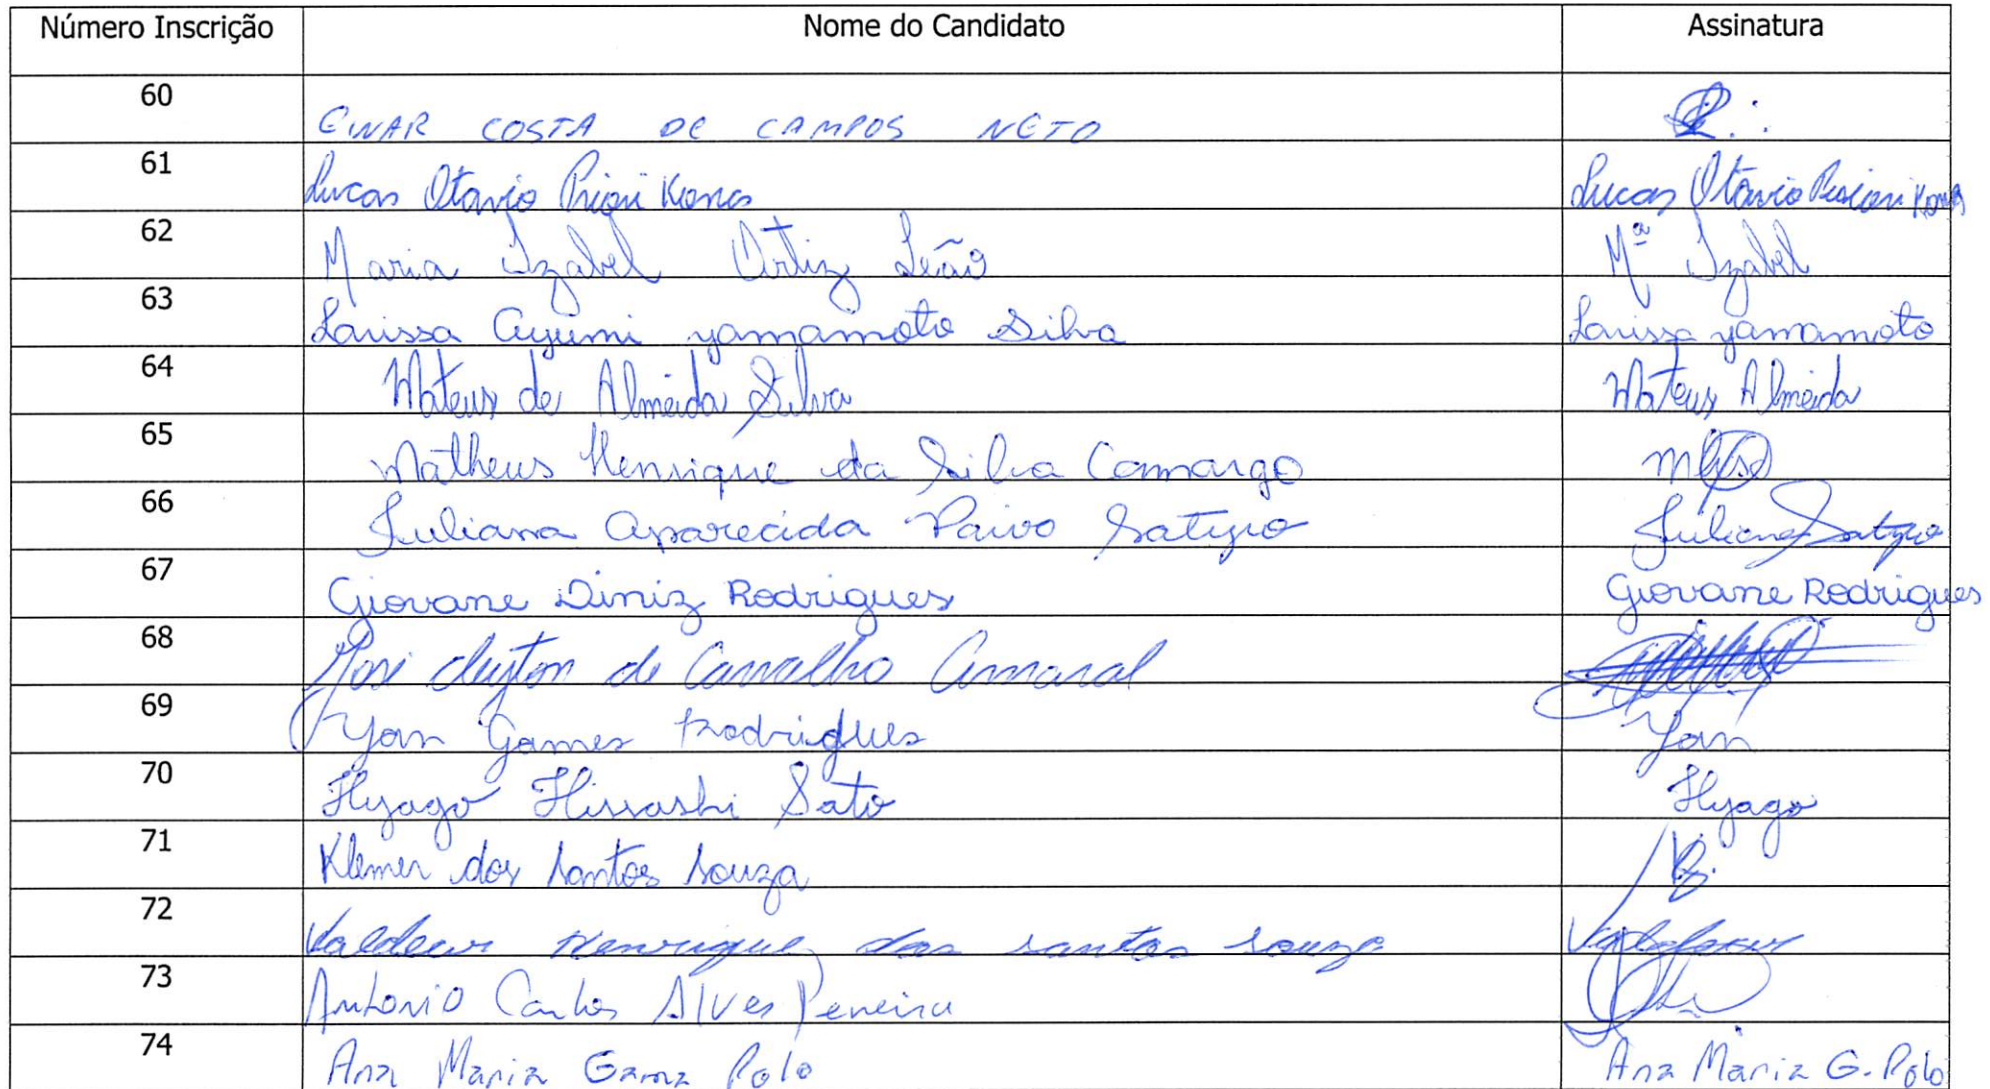 Número Inscrição Nome do Candidato Assinatura
60 COSTA DE CAMPOS NETO
61 Lucas Otavio Lucas Otávio
62 Maria Izabel Ortiz Leão Mª Izabel
63 Larissa Ayumi yamamoto Silva Larissa yamamoto
64 Mateus de Almeida Silva Mateus Almeida
65 Matheus Henrique da Silva Camargo
66 Juliana Aparecida Paiva Satyro Juliana Satyro
67 Giovane Diniz Rodrigues Giovane Rodrigues
68 José cleyton de Carvalho Amaral
69 Yan Gomes Rodrigues Yan
70 Hyago Hissashi Sato Hyago
71 Klemer dos santos souza
72 Henrique dos santos souza
73 Antonio Carlos Alves Pereira
74 Ana Maria Gama Polo Ana Maria G. Polo